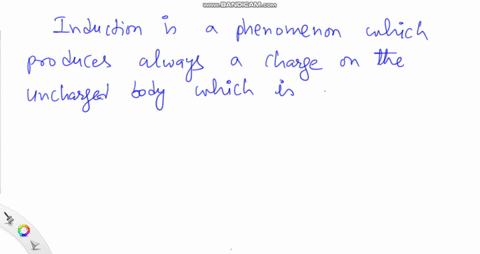 www.BANDICAM.com
Induction is a phenomenon which
produces always a charge on the
uncharged body which is